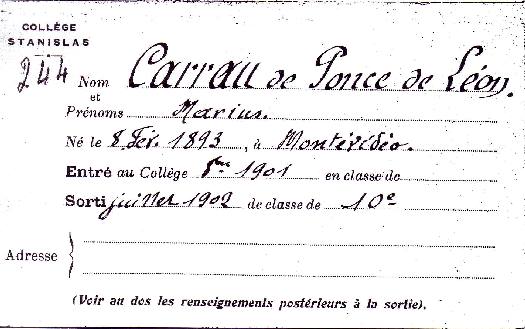 COLLÈGE
STANISLAS
244
Nom Carrau de Ponce de Léon.
et
Prénoms Marius.
Né le 8 Fév. 1893, à Montévidéo.
Entré au Collège 8bre 1901 en classe de
Sorti juillet 1902 de classe de 10e
Adresse
(Voir au dos les renseignements postérieurs à la sortie).